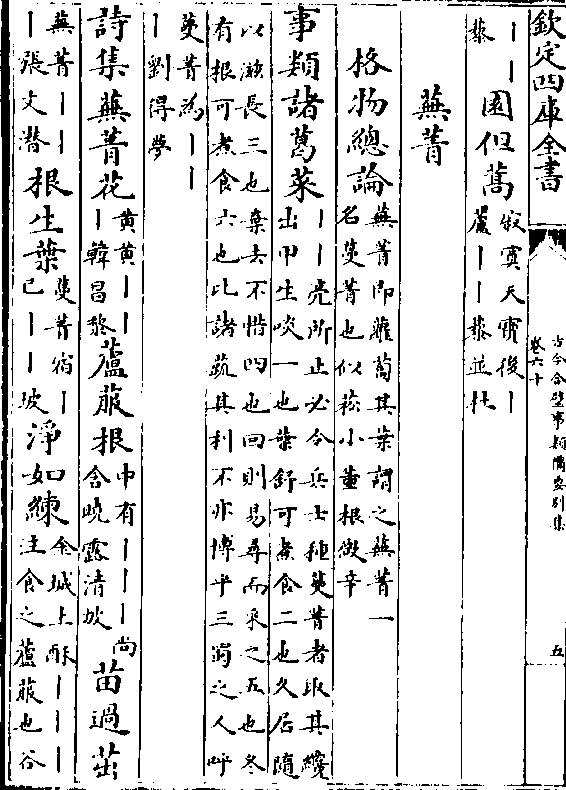 欽定四庫全書
古今合璧事類備要别集
卷六十
五
丨丨園但蒿
寂寞天寶後丨
藜
廬丨丨藜並杜
蕪菁
格物總論
蕪菁即蘿蔔其葉謂之蕪菁一
名蔓菁也似菘小薹根微辛
事類諸葛菜
丨丨亮所止必令兵士種蔓菁者取其纔
出甲生啖一也葉舒可煮食二也久居隨
以滋長三也棄去不惜四也回則易尋而采之五也冬
有根可煮食六也比諸蔬其利不亦博乎三蜀之人呼
蔓菁為丨丨
丨劉得夢
詩集蕪菁花
黄黄丨丨
丨韓昌黎
蘆菔根
中有丨丨丨尚
含曉露清坡
苗過茁
蕪菁丨丨
丨張文潛
根生葉
蔓菁宿丨
已丨丨坡
淨如練
金城土酥丨丨丨
注食之蘆菔也谷